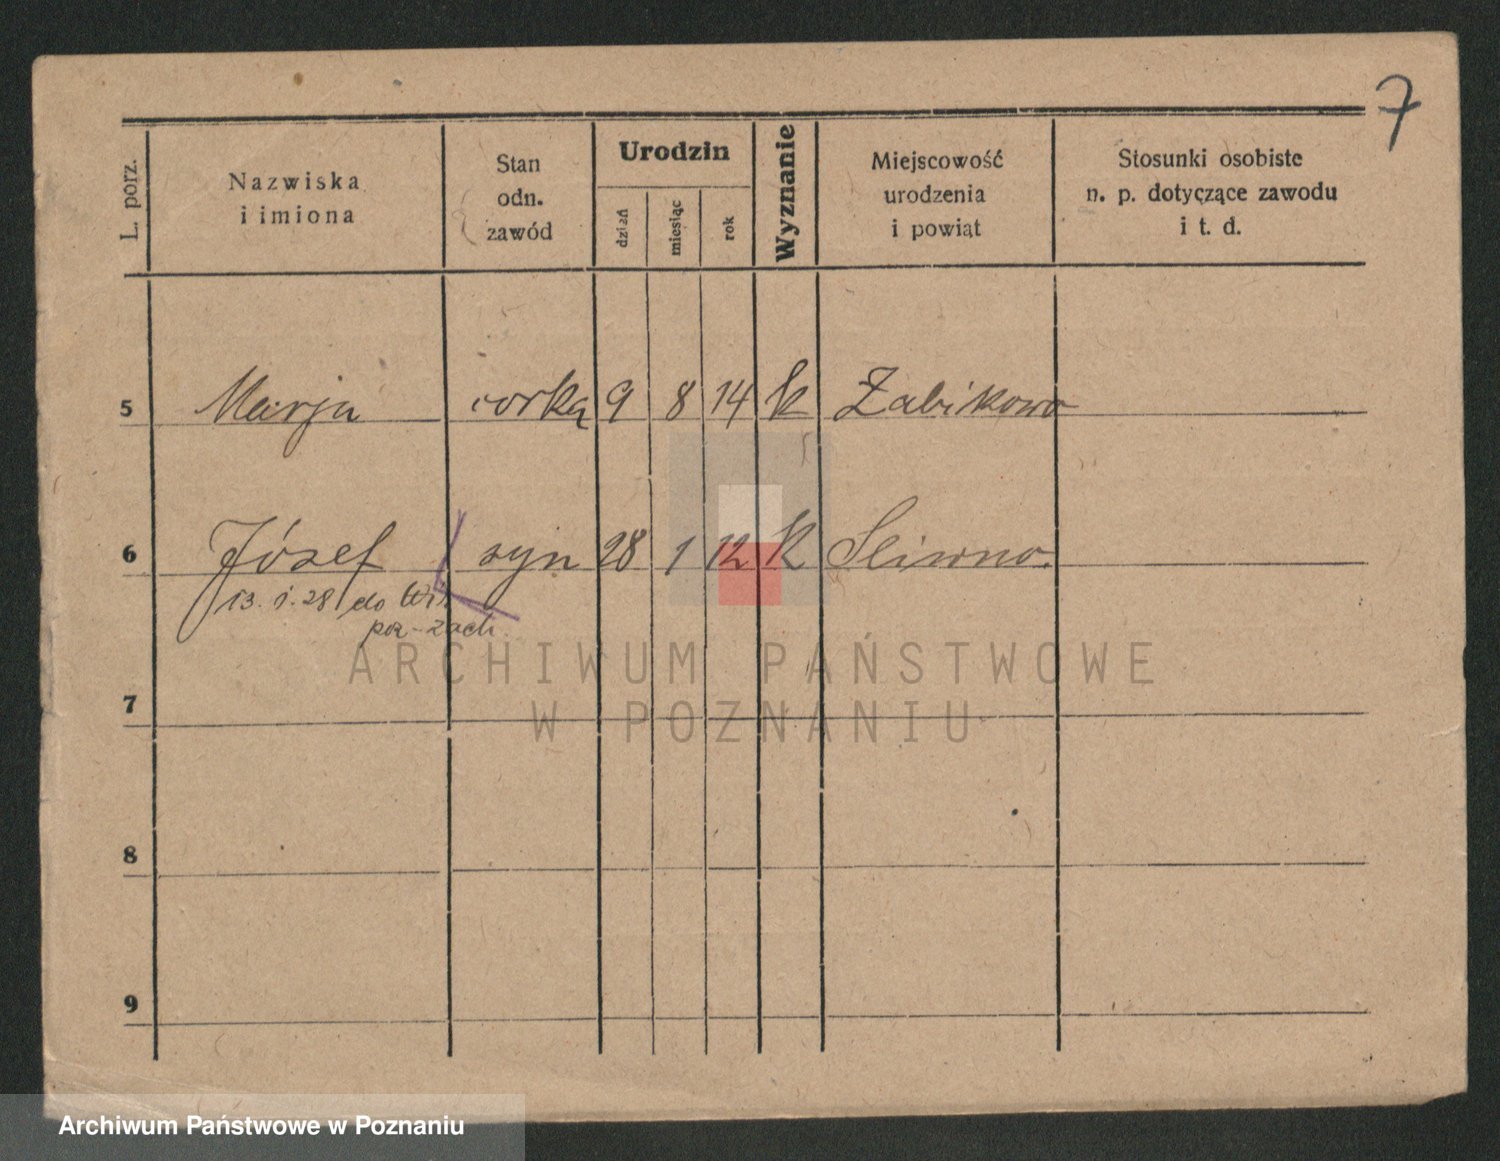 7
L. porz.
Nazwiska
i imiona
Stan
odn.
zawód
Urodzin
dzień
miesiąc
rok
Wyznanie
Miejscowość
urodzenia
i powiąt
Stosunki osobiste
n. p. dotyczące zawodu
i t. d.
5 Marja corką 9 8 14 k Żabikowo
6 Józef syn 28 1 12 k Sliwno
13. 1. 28 do
poz-zach.
7
8
9
ARCHIWUM PAŃSTWOWE
W POZNANIU
Archiwum Państwowe w Poznaniu